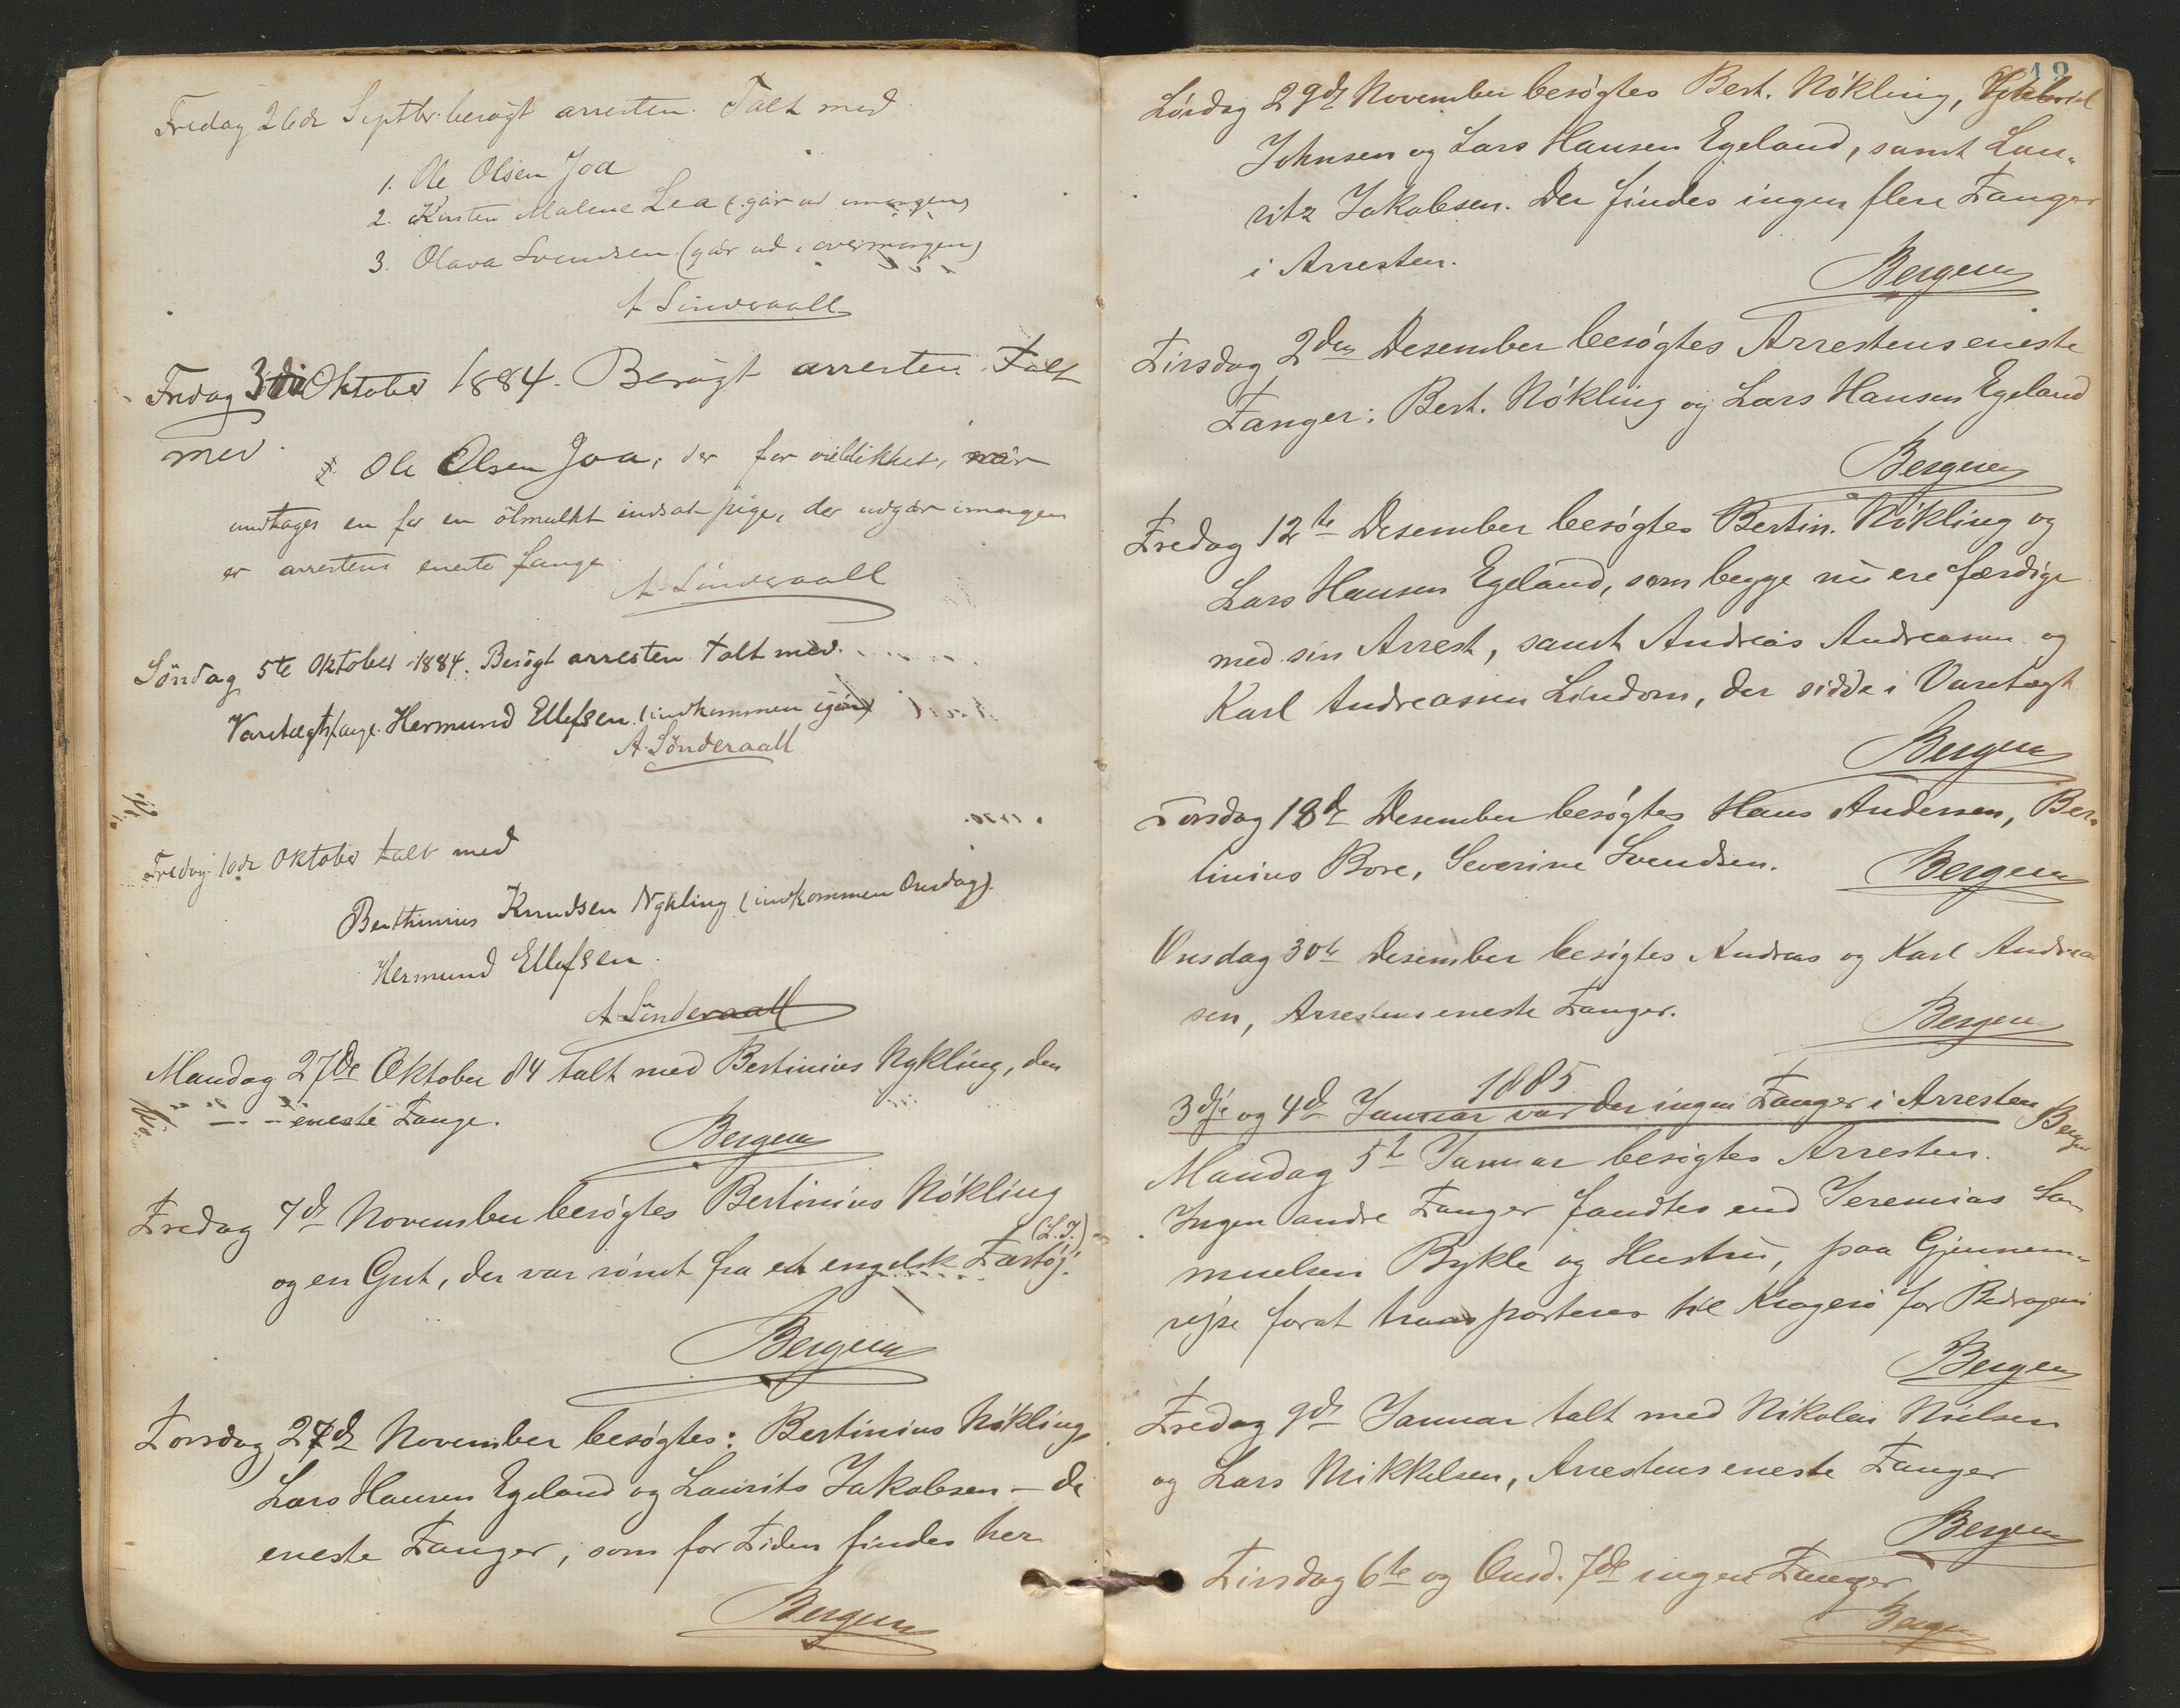 Fredag 26de Septbr. besøgt arresten. Talt med
1. Ole Olsen Joa
2. Kirsten Malene Lea (går ud imorgen)
3. Olava Svendsen (går ud i overmorgen)
A Sönderaall
Fredag 3die Oktober 1884. Besøgt arresten. Talt
med
Ole Olsen Joa, der for
undtages en for en ölmulkt indsat pige, der udgår imorgen
er arrestens eneste fange
A. Sönderaall
Söndag 5te Oktober 1884. Besögt arresten talt med
Varetægtsfange Hermund Ellefsen (indkommen igår)
A. Sönderaall
Fredag 10de Oktober talt med
Berthinius Knudsen Nykling (indkommen Onsdag).
Hermund Ellefsen.
A Sönderaall
Mandag 27de Oktober 84 talt med Bertinius Nykling, den
eneste Fange.
Bergern
Fredag 7de November besøgtes Bertinius Nökling
(L.J.)
og en Gut, der var römt fra et engelsk Fartöj.
Bergern
Torsdag 27de November besøgtes: Bertinius Nökling
Lars Hansen Egeland og Laurits Jakobsen – de
eneste Fanger, som for Tiden findes her
Bergern
Lörsdag 29de November besøgtes Bert. Nökling,
Johnsen og Lars Hansen Egeland, samt Lau-
ritz Jakobsen. Der findes ingen flere Fanger
i Arresten.
Bergern
Tirsdag 2den Desember besøgtes Arrestens eneste
Fanger: Bert. Nökling og Lars Hansen Egeland
Bergern
Fredag 12te Desember besøgtes Bertin. Nökling og
Lars Hansen Egeland, som begge nu ere færdige
med sin Arrest, samt Andreas Andreasen og
Karl Andreassen Lindom, der sidde i Varetægt
Bergern
Torsdag 18de Desember besøgtes Hans Andersen, Ber-
tinius Bore, Severine Svendsen.
Bergern
Onsdag 30te Desember besøgtes Andreas og Karl Andrea
sen, Arrestens eneste Fanger.
Bergern
1885
3dje og 4de Januar var der ingen Fanger i Arresten
Bergern
Mandag 5te Januar besøgtes Arresten.
Ingen andre Fanger fandtes end Jeremias Sa
muelsen Bykle og Hustru, paa Gjennem-
rejse forat transporteres til Kragerö for Bedrageri
Bergern
Fredag 9de Januar talt med Nikolai Nielsen
og Lars Mikkelsen, Arrestens eneste Fanger
Bergern
Tirsdag 6te og Onsd. 7de ingen Fanger
Bergern